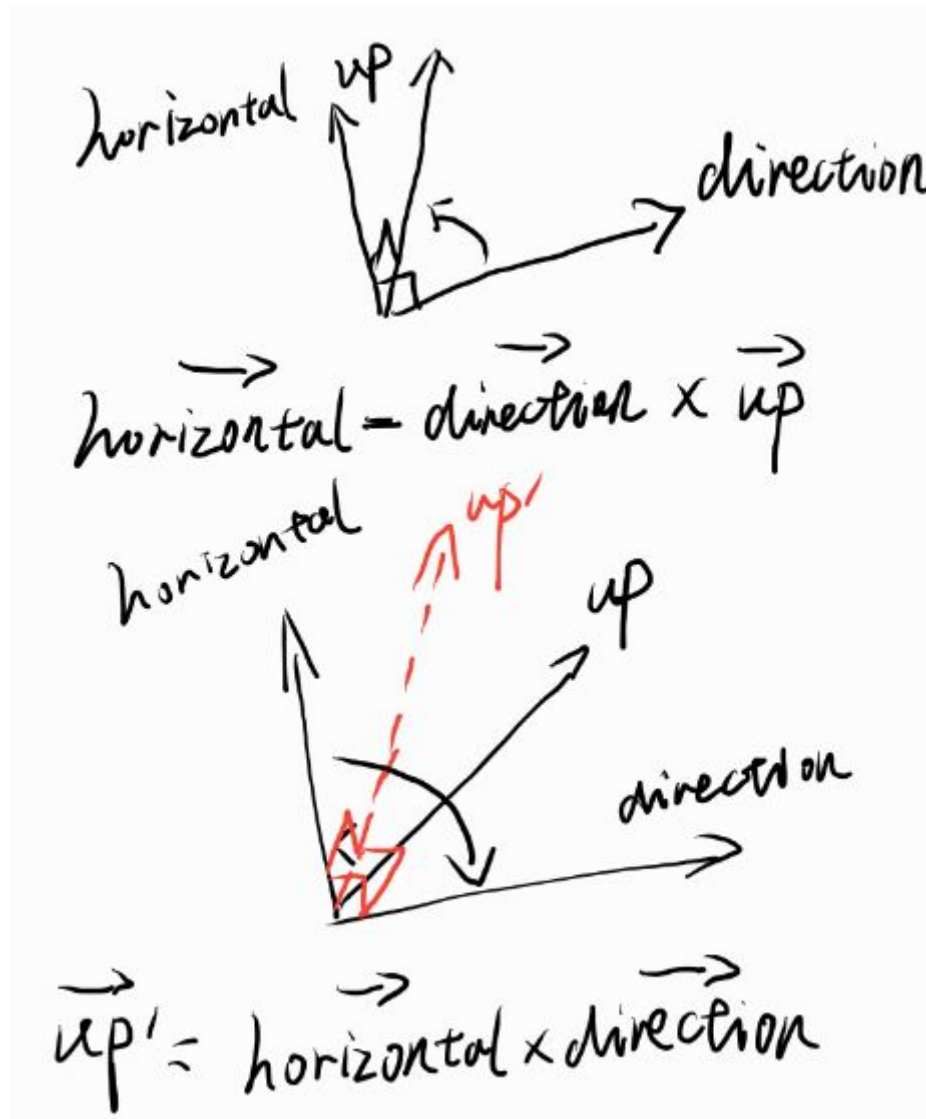 horizontal up
direction
horizontal = direction × up
horizontal
up'
up
direction
up' = horizontal × direction